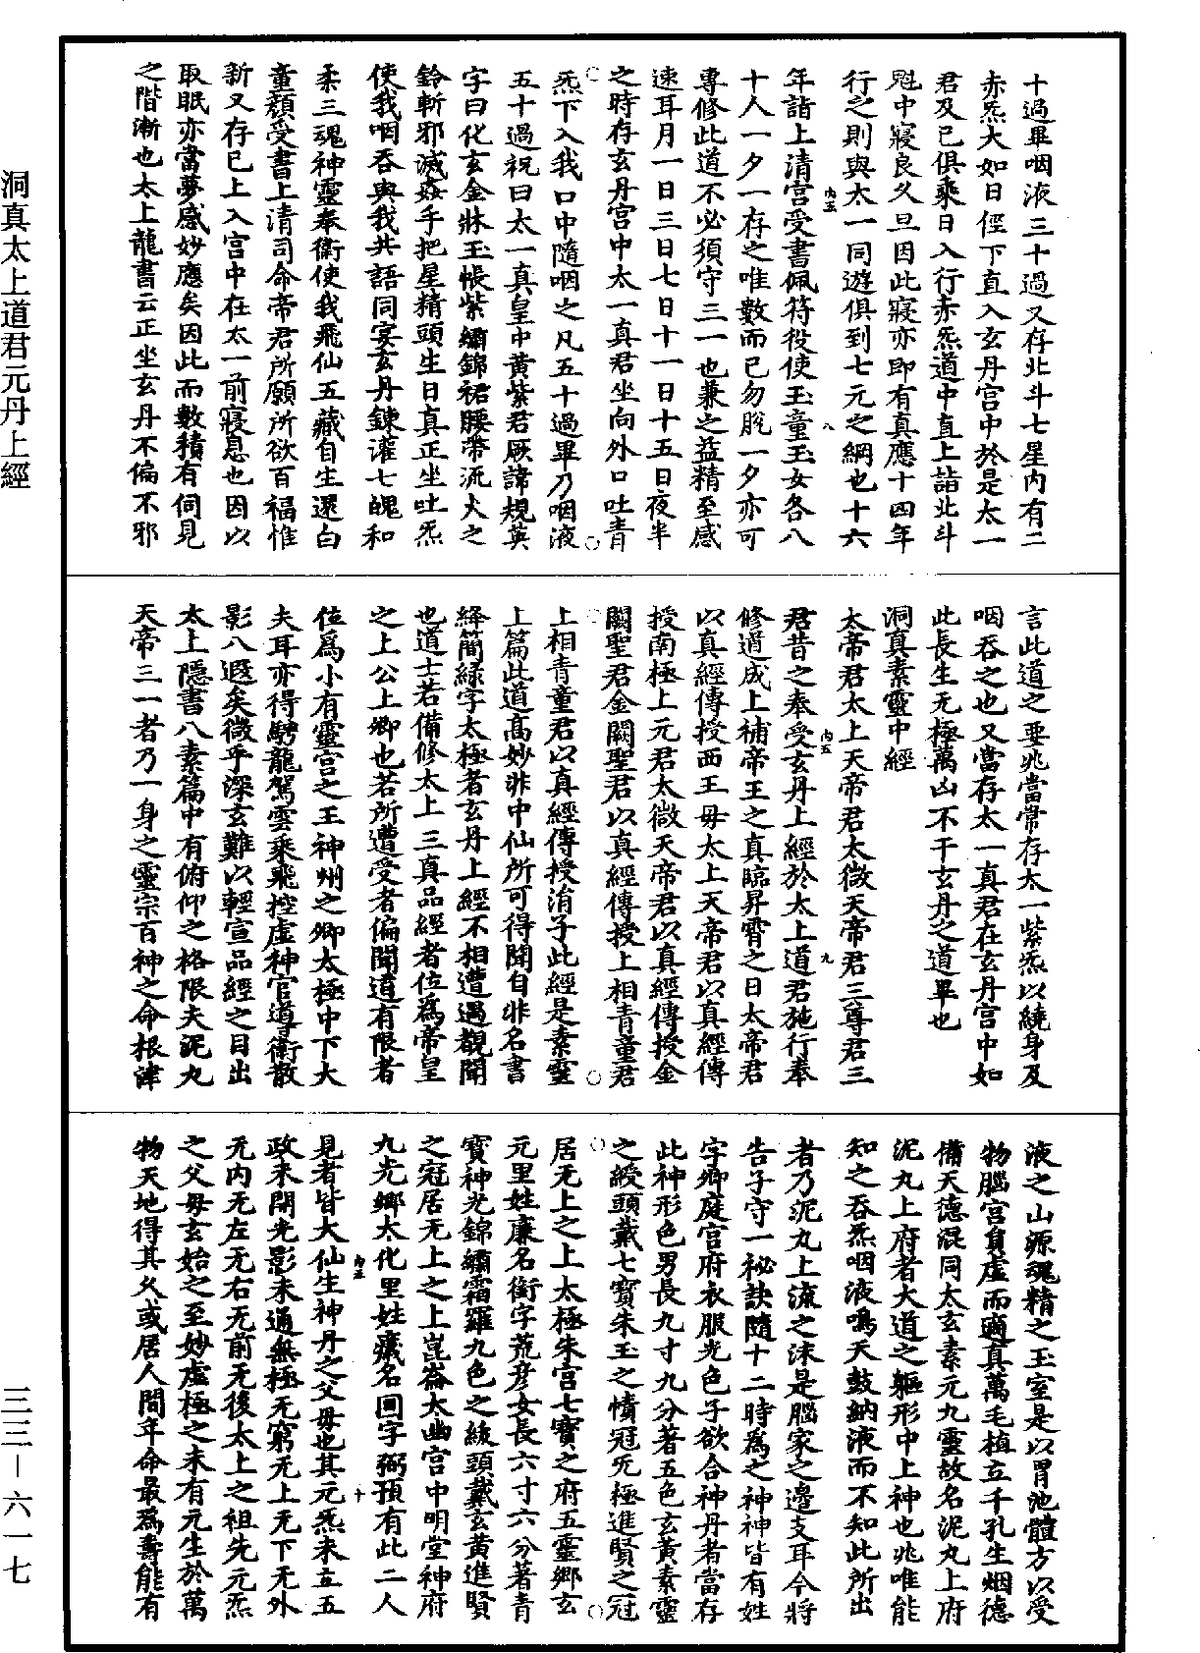 十過畢咽液三十過又存北斗七星内有二
赤炁大如日徑下直入玄丹宮中於是太一
君及已俱乘日入行赤炁道中直上詣北斗
魁中寢良久旦因此寢亦即有真應十四年
行之則與太一同遊俱到七元之綱也十六
年詣上清宮受書佩符役使玉童玉女各八
十人一夕一存之唯數而已勿脫一夕亦可
專修此道不必須守三一也兼之益精至感
速耳月一日三日七日十一日十五日夜半
之時存玄丹宮中太一真君坐向外口吐青
炁下入我口中隨咽之凡五十過畢乃咽液
五十過祝曰太一真皇中黃紫君厥諱規英
字曰化玄金牀玉帳紫繡錦裙腰帶流火之
鈴斬邪滅姦手把星精頭生日真正坐吐炁
使我咽吞與我共語同宴玄丹鍊灌七魄和
柔三魂神靈奉衛使我飛仙五藏自生還白
童顏受書上清司命帝君所願所欲百福惟
新又存已上入宮中在太一前寢息也因以
取眠亦當夢感妙應矣因此而數積有伺見
之階漸也太上龍書云正坐玄丹不偏不邪
言此道之要兆當常存太一紫炁以繞身及
咽吞之也又當存太一真君在玄丹宮中如
此長生无極萬凶不干玄丹之道畢也
洞真素靈中經
太帝君太上天帝君太微天帝君三尊君三
君昔之奉受玄丹上經於太上道君施行奉
修道成上補帝王之真臨昇霄之日太帝君
以真經傳授西王母太上天帝君以真經傳
授南極上元君太微天帝君以真經傳授金
闕聖君金闕聖君以真經傳授上相青童君
上相青童君以真經傳授涓子此經是素靈
上篇此道高妙非中仙所可得聞自非名書
絳簡綠字太極者玄丹上經不相遭遇覩聞
也道士若備修太上三真品經者位為帝皇
之上公上卿也若所遭受者偏聞道有限者
位為小有靈宮之王神州之卿太極中下大
夫耳亦得驂龍駕雲乘飛控虛神官導衛散
影八遐矣微乎深玄難以輕宣品經之目出
太上隱書八素篇中有俯仰之格限夫泥丸
天帝三一者乃一身之靈宗百神之命根津
液之山源魂精之玉室是以胃池體方以受
物腦宮負虛而適真萬毛植立千孔生烟德
備天德混同太玄素元九靈故名泥丸上府
泥丸上府者大道之軀形中上神也兆唯能
知之吞炁咽液鳴天鼓納液而不知此所出
者乃泥丸上流之沫是腦家之邊支耳今將
告子守一祕訣隨十二時為之神神皆有姓
字鄉庭宮府衣服光色子欲合神丹者當存
此神形色男長九寸九分著五色玄黃素靈
之綬頭戴七寶朱玉之幘冠无極進賢之冠
居无上之上太極朱宮七寶之府五靈鄉玄
元里姓廉名銜字荒彦女長六寸六分著青
寶神光錦繡霜羅九色之綬頭戴玄黃進賢
之冠居无上之上崑崙太幽宮中明堂神府
九光鄉太化里姓藏名回字弼預有此二人
見者皆大仙生神丹之父母也其元炁未立五
政未開光影未通無極无窮无上无下无外
无内无左无右无前无後太上之祖先元炁
之父母玄始之至妙虛極之未有元生於萬
物天地得其久或居人間年命最為壽能有
洞真太上道君元丹上經
三三－六一七